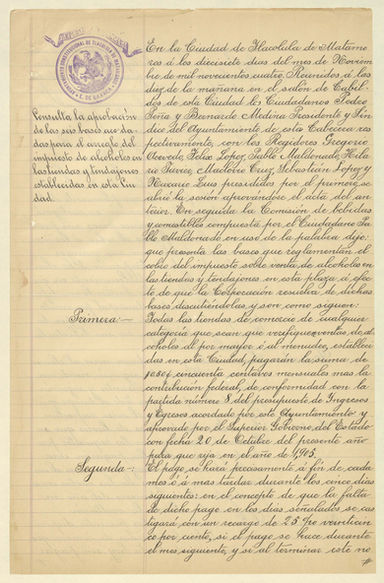 AYUNTAMIENTO CONSTITUCIONAL DE TLACOLULA DE MATAMOROS
E. DE OAXACA
Consulta la aprobación
de las seis bases acorda-
das para el arreglo del
impuesto de alcoholes en
las tiendas y tendajones
establecidas en esta Ciu-
dad.
En la Ciudad de Tlacolula de Matamo
ros á los diecisiete dias del mes de Noviem
bre de mil novecientos cuatro. Reunidos á las
diez de la mañana en el salón de Cabil-
dos de esta Ciudad los Ciudadanos
Peña y Bernardo Medina Presidente y Sín
dico del Ayuntamiento de esta Cabecera res
pectivamente, con los Regidores Gregorio
Acevedo, Felix López, Pablo Maldonado, Hila
rio Juarez, Mactovio Cruz, Sebastián López y
Nazario Luis presididos por el primero, se
abrió la sesión aprovandose el acta del an-
terior. En seguida la Comisión de bebidas
y comestibles compuesta por el Ciudadano Pa
blo Maldonado en uso de la palabra dijo:
que presenta las bases que reglamentan el
cobro del impuesto sobre venta de alcoholes en
las tiendas y tendajones en esta plaza á efec
to de que la Corporación resuelva de dichas
bases discutiendolas y son como siguen:
Primera:— Todas las tiendas de comercio de cualquier
categoría que sean que verifiquen ventas de al
coholes al por mayor ó al menudeo, estableci
das en esta Ciudad, pagarán la suma de
pesos cincuenta centavos mensuales mas la
contribución federal, de conformidad con la
partida número 8, del presupuesto de Ingresos
y Egresos acordado por este Ayuntamiento y
aprovado por el Superior Gobierno del Estado
con fecha 20 de Octubre del presente año
para que rija en el año de 1,905.
Segunda:— El pago se hará precisamente á fin de cada
mes ó á mas tardar durante los cinco dias
siguientes: en el concepto de que la falta
de dicho pago en los dias señalados se cas
tigará con un recargo de 25 % veinticin
co por ciento, si el pago se hace durante
el mes siguiente, y si al terminar este no